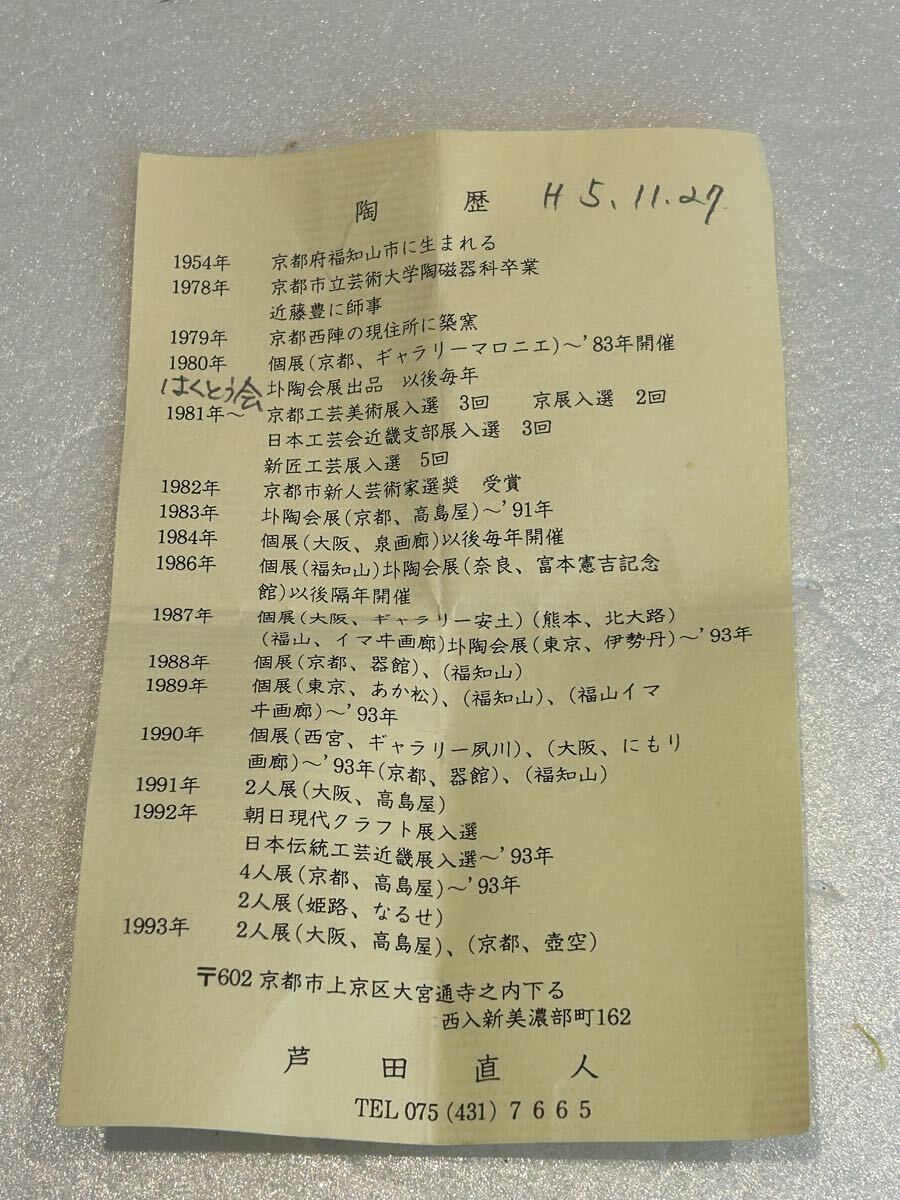 陶 歴 H5.11.27
1954年 京都府福知山市に生まれる
1978年 京都市立芸術大学陶磁器科卒業
近藤豊に師事
1979年 京都西陣の現住所に築窯
1980年 個展(京都、ギャラリーマロニエ)〜'83年開催
はくとう会 圤陶会展出品 以後毎年
1981年〜 京都工芸美術展入選 3回 京展入選 2回
日本工芸会近畿支部展入選 3回
新匠工芸展入選 5回
1982年 京都市新人芸術家選奨 受賞
1983年 圤陶会展(京都、高島屋)〜'91年
1984年 個展(大阪、泉画廊)以後毎年開催
1986年 個展(福知山)圤陶会展(奈良、富本憲吉記念
館)以後隔年開催
1987年 個展(大阪、ギャラリー安土)(熊本、北大路)
(福山、イマヰ画廊)圤陶会展(東京、伊勢丹)〜'93年
1988年 個展(京都、器館)、(福知山)
1989年 個展(東京、あか松)、(福知山)、(福山イマ
ヰ画廊)〜'93年
1990年 個展(西宮、ギャラリー夙川)、(大阪、にもり
画廊)〜'93年(京都、器館)、(福知山)
1991年 2人展(大阪、高島屋)
1992年 朝日現代クラフト展入選
日本伝統工芸近畿展入選〜'93年
4人展(京都、高島屋)〜'93年
2人展(姫路、なるせ)
1993年 2人展(大阪、高島屋)、(京都、壺空)
〒602 京都市上京区大宮通寺之内下る
西入新美濃部町162
芦 田 直 人
TEL 075 (431) 7665